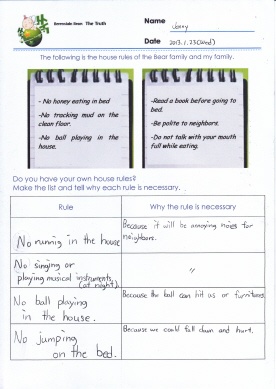 Berenstain Bears The Truth
Name Jenny
Date 2013.1.23(Wed)
The following is the house rules of the Bear family and my family.
- No honey eating in bed
- No tracking mud on the clean floor.
- No ball playing in the house.
-Read a book before going to bed.
-Be polite to neighbors.
-Do not talk with your mouth full while eating.
Do you have your own house rules?
Make the list and tell why each rule is necessary.
Rule
Why the rule is necessary
No runnig in the house
Because it will be annoying noies for
neighbors.
No singing or
playing musical instruments.
(at night)
〃
No ball playing
in the house.
Because the ball can hit us or furnitures.
No jumping
on the bed.
Because we could fall down and hurt.